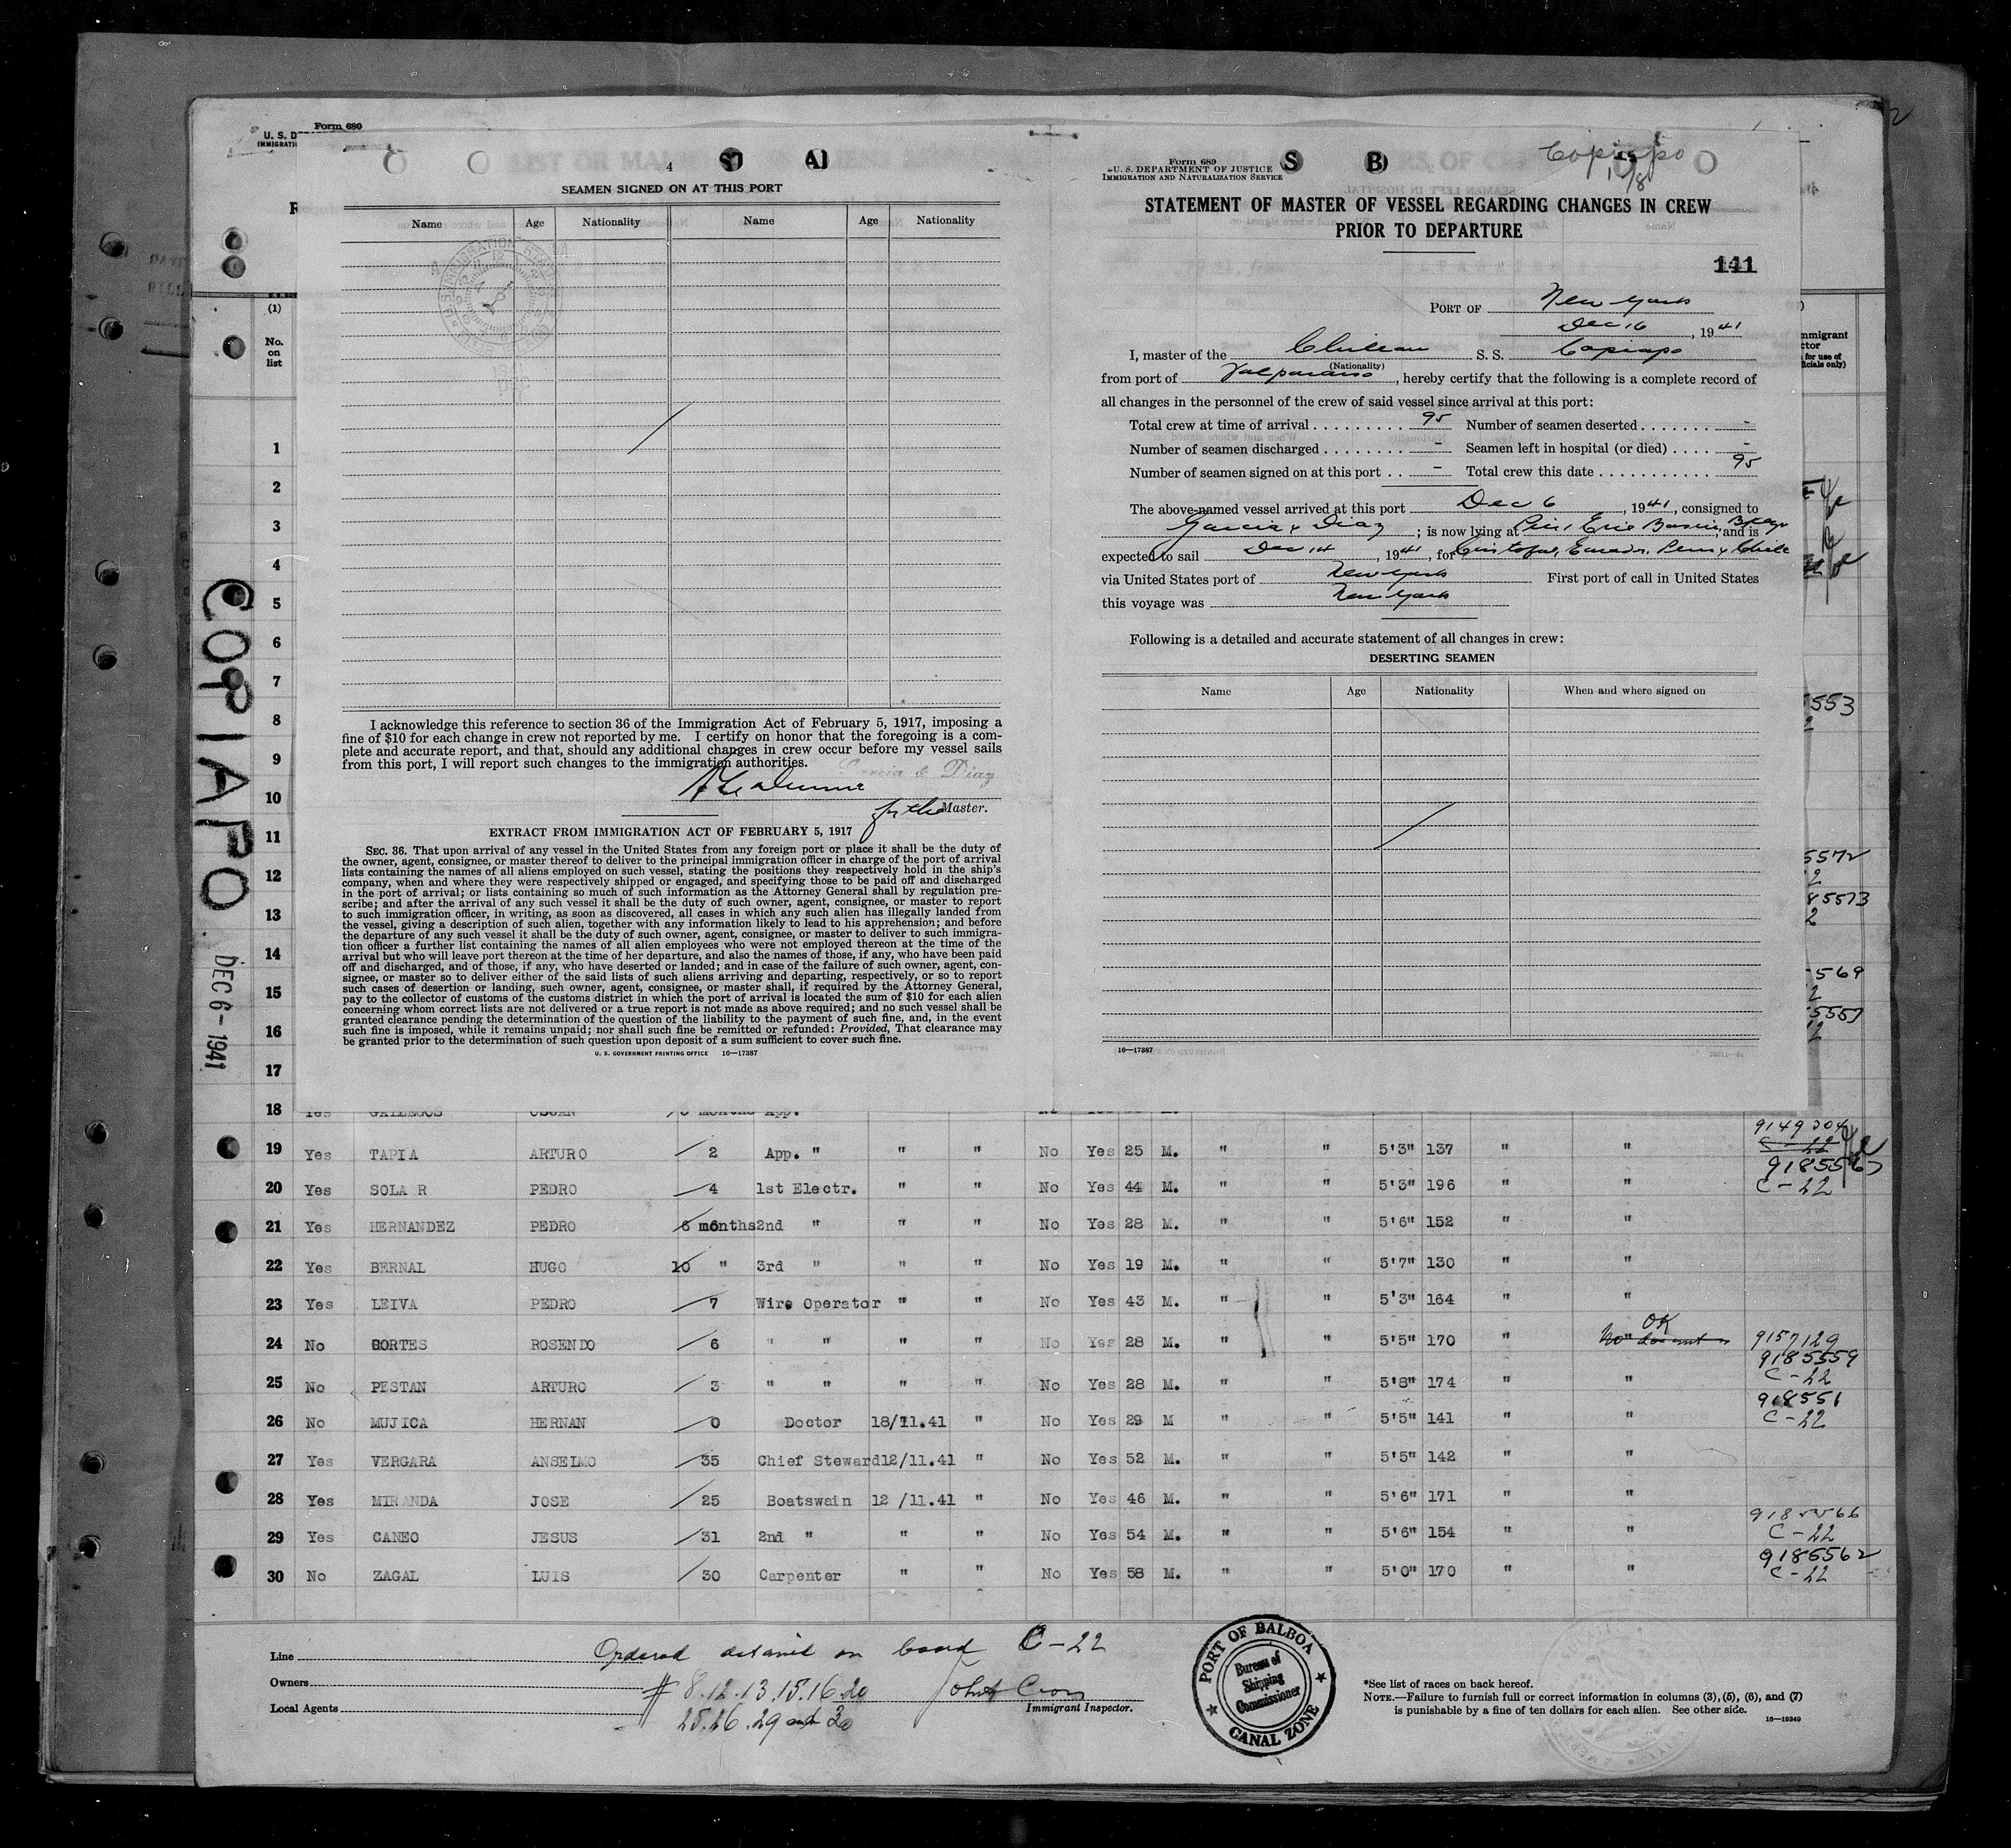 Form 680
U. S. D
IMMIGRATI
4
SEAMEN SIGNED ON AT THIS PORT
Name Age Nationality Name Age Nationality
I acknowledge this reference to section 36 of the Immigration Act of February 5, 1917, imposing a
fine of $10 for each change in crew not reported by me. I certify on honor that the foregoing is a com-
plete and accurate report, and that, should any additional changes in crew occur before my vessel sails
from this port, I will report such changes to the immigration authorities.
Garcia & Diaz
for the Master.
EXTRACT FROM IMMIGRATION ACT OF FEBRUARY 5, 1917
SEC. 36. That upon arrival of any vessel in the United States from any foreign port or place it shall be the duty of
the owner, agent, consignee, or master thereof to deliver to the principal immigration officer in charge of the port of arrival
lists containing the names of all aliens employed on such vessel, stating the positions they respectively hold in the ship's
company, when and where they were respectively shipped or engaged, and specifying those to be paid off and discharged
in the port of arrival; or lists containing so much of such information as the Attorney General shall by regulation pre-
scribe; and after the arrival of any such vessel it shall be the duty of such owner, agent, consignee, or master to report
to such immigration officer, in writing, as soon as discovered, all cases in which any such alien has illegally landed from
the vessel, giving a description of such alien, together with any information likely to lead to his apprehension; and before
the departure of any such vessel it shall be the duty of such owner, agent, consignee, or master to deliver to such immigra-
tion officer a further list containing the names of all alien employees who were not employed thereon at the time of the
arrival but who will leave port thereon at the time of her departure, and also the names of those, if any, who have been paid
off and discharged, and of those, if any, who have deserted or landed; and in case of the failure of such owner, agent, con-
signee, or master so to deliver either of the said lists of such aliens arriving and departing, respectively, or so to report
such cases of desertion or landing, such owner, agent, consignee, or master shall, if required by the Attorney General,
pay to the collector of customs of the customs district in which the port of arrival is located the sum of $10 for each alien
concerning whom correct lists are not delivered or a true report is not made as above required; and no such vessel shall be
granted clearance pending the determination of the question of the liability to the payment of such fine, and, in the event
such fine is imposed, while it remains unpaid; nor shall such fine be remitted or refunded: Provided, That clearance may
be granted prior to the determination of such question upon deposit of a sum sufficient to cover such fine.
U. S. GOVERNMENT PRINTING OFFICE 16—17387
Form 689
U. S. DEPARTMENT OF JUSTICE
IMMIGRATION AND NATURALIZATION SERVICE
Copiapo
STATEMENT OF MASTER OF VESSEL REGARDING CHANGES IN CREW
PRIOR TO DEPARTURE
141
PORT OF New York
Dec 16, 1941
I, master of the Chilean S. S. Copiapo
(Nationality)
from port of Valparaiso, hereby certify that the following is a complete record of
all changes in the personnel of the crew of said vessel since arrival at this port:
Total crew at time of arrival 95 Number of seamen deserted -
Number of seamen discharged - Seamen left in hospital (or died) -
Number of seamen signed on at this port - Total crew this date 95
The above-named vessel arrived at this port Dec 6, 1941, consigned to
Garcia & Diaz; is now lying at Pier 1 Erie Basin, Bklyn and is
expected to sail Dec 14, 1941, for Cristobal, Ecuador, Peru & Chile
via United States port of New York First port of call in United States
this voyage was New York
Following is a detailed and accurate statement of all changes in crew:
DESERTING SEAMEN
Name Age Nationality When and where signed on
16—17387
(1)
No.
on
list
1
2
3
4
5
6
7
8
9
10
11
12
13
14
15
16
17
COPIAPO
DEC 6-1941
mmigrant
ctor
for use of
ficials only)
5553
5572
85573
569
5557
18 Yes GALLEGOS OSCAR 6 months App.
19 Yes TAPIA ARTURO 2 App. " " " No Yes 25 M. " " 5'3" 137 " " 9149204 C-22
20 Yes SOLAR PEDRO 4 1st Electr. " " No Yes 44 M. " " 5'3" 196 " " 9185567 C-22
21 Yes HERNANDEZ PEDRO 6 months 2nd " " " No Yes 28 M. " " 5'6" 152 " "
22 Yes BERNAL HUGO 10 " 3rd " " " No Yes 19 M. " " 5'7" 130 " "
23 Yes LEIVA PEDRO 7 Wire Operator " " No Yes 43 M. " " 5'3" 164 " "
24 No CORTES ROSENDO 6 " " " " No Yes 28 M. " " 5'5" 170 " No document OK 9157129
25 No PESTAN ARTURO 3 " " " " No Yes 28 M. " " 5'8" 174 " " 9185559 C-22
26 No MUJICA HERNAN 0 Doctor 18/11.41 " No Yes 29 M " " 5'5" 141 " " 918551 C-22
27 Yes VERGARA ANSELMO 35 Chief Steward 12/11.41 " No Yes 52 M. " " 5'5" 142 " "
28 Yes MIRANDA JOSE 25 Boatswain 12 /11.41 " No Yes 46 M. " " 5'6" 171 " "
29 Yes CANEO JESUS 31 2nd " " " No Yes 54 M. " " 5'6" 154 " " 9185566 C-22
30 No ZAGAL LUIS 30 Carpenter " " No Yes 58 M. " " 5'0" 170 " " 9185562 C-22
Line Ordered detained on board C-22
Owners # 8.12.13.15.16.20
Local Agents 25.26.29 and 30
Immigrant Inspector.
PORT OF BALBOA
Bureau of
Shipping
Commissioner
CANAL ZONE
*See list of races on back hereof.
NOTE.—Failure to furnish full or correct information in columns (3), (5), (6), and (7)
is punishable by a fine of ten dollars for each alien. See other side.
16—19349